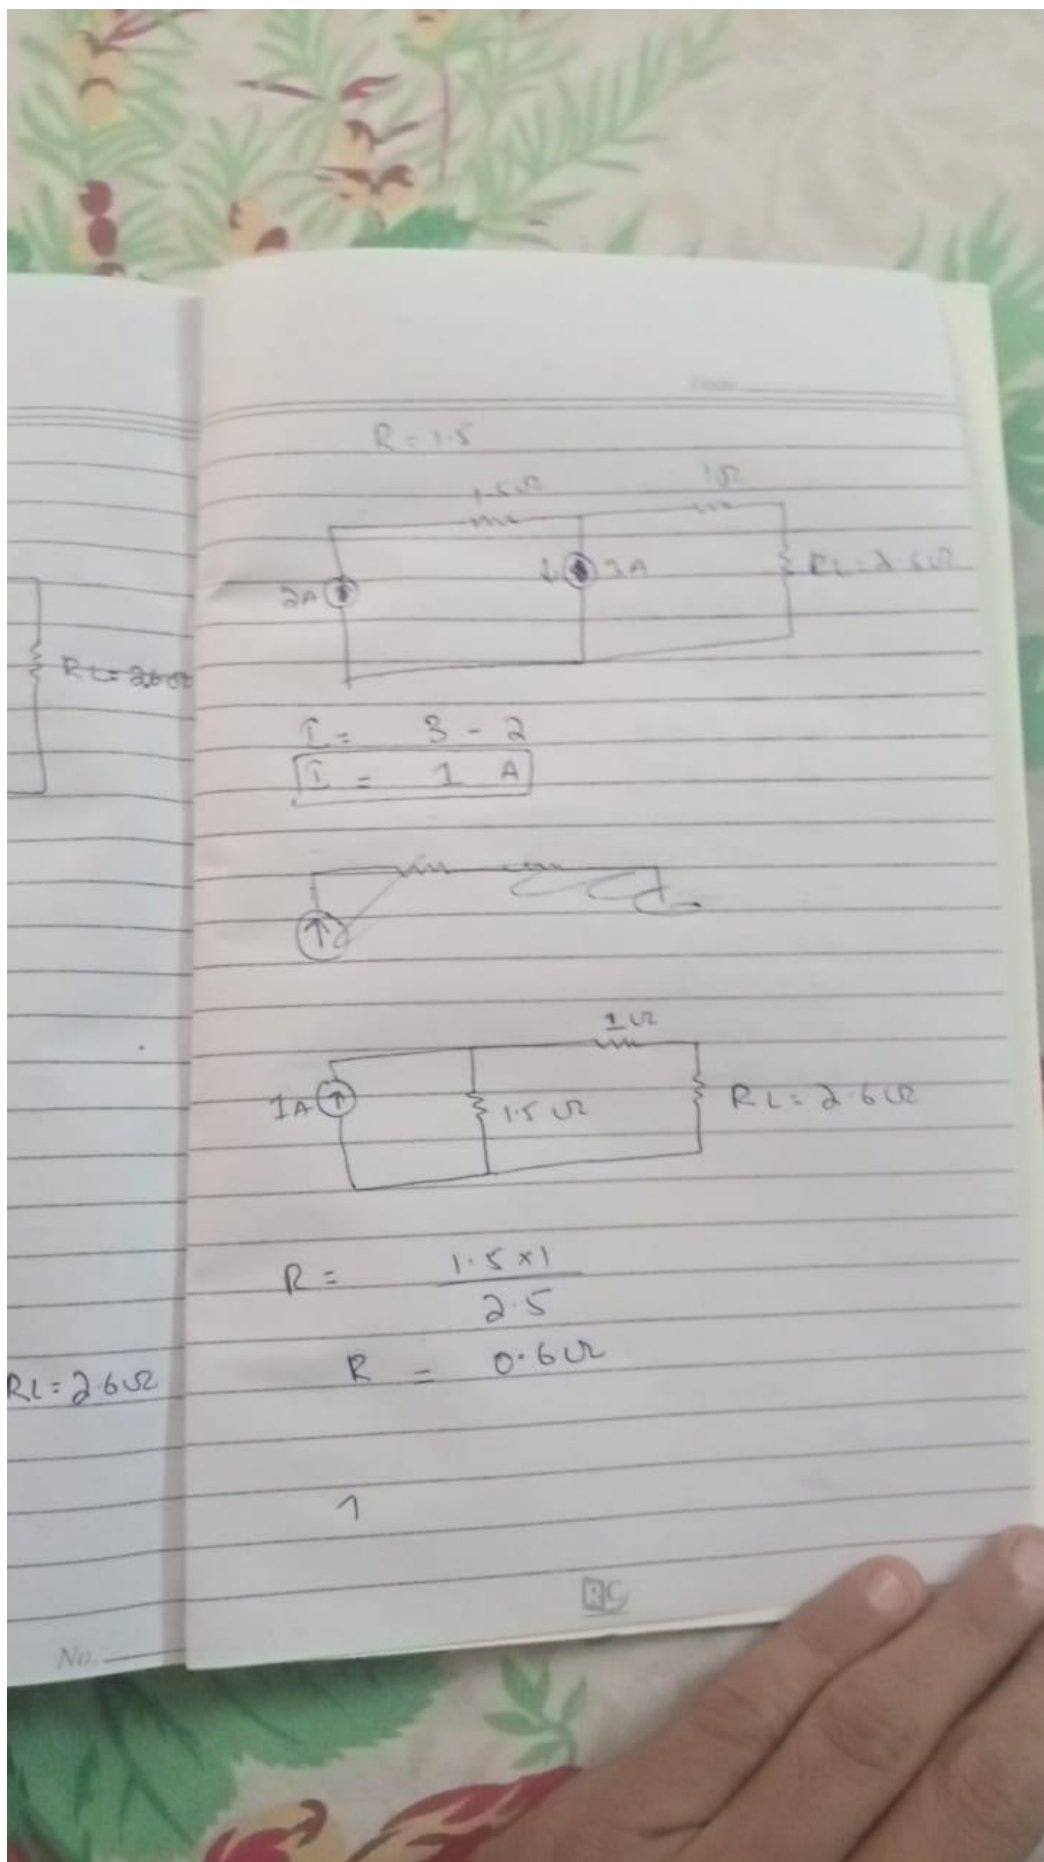 Date
R = 1.5
1.5Ω
1Ω
2A
3A
RL = 2.6Ω
RL = 2.6Ω
I = 3 - 2
I = 1 A
1Ω
1A
1.5Ω
RL = 2.6Ω
R = 1.5 × 1
2.5
R = 0.6Ω
RL = 2.6Ω
1
RC
No.